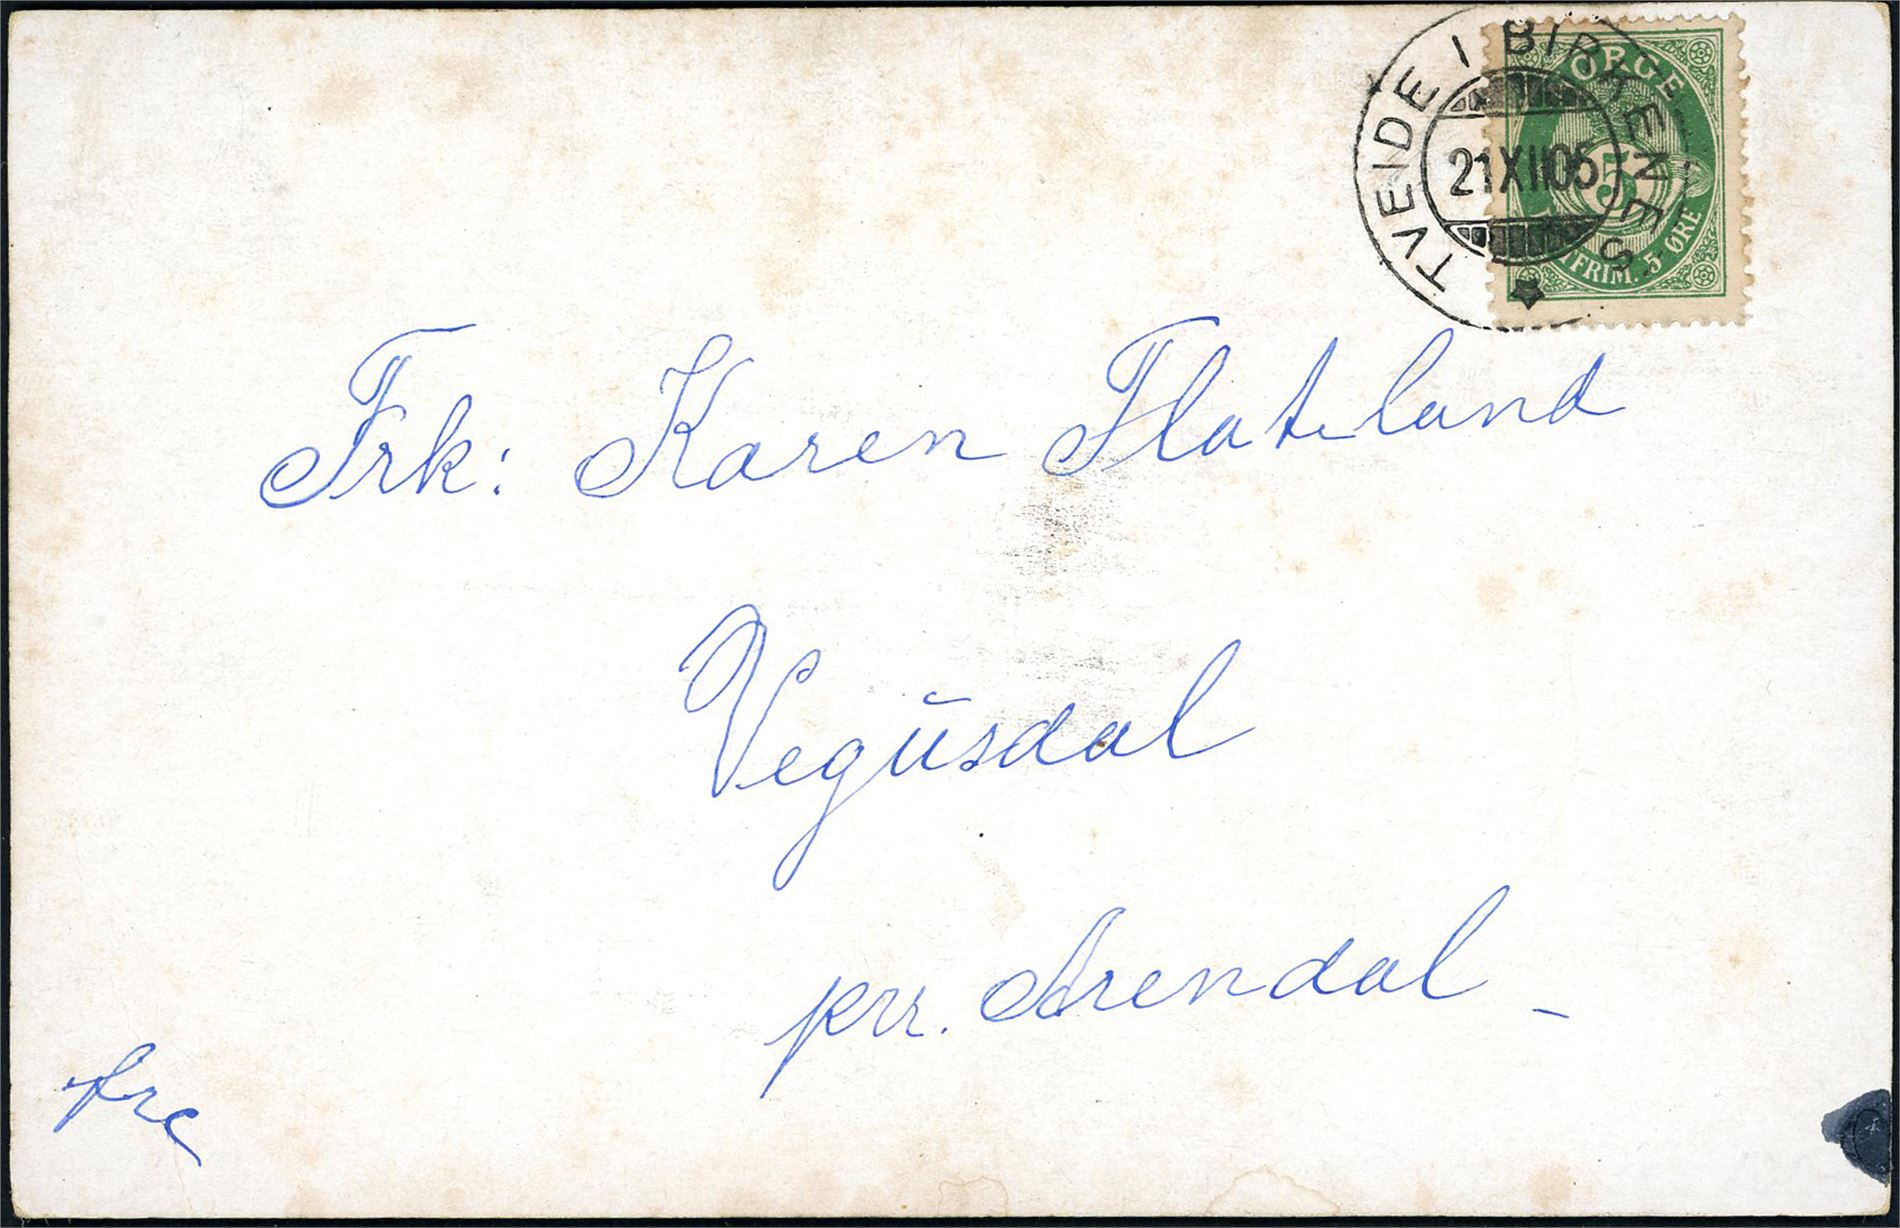 TVEIDE I BIRKENES
21 XII 05
NORGE
5
FRIM. 5 ØRE
Frk: Karen Flateland
Vegusdal
prr. Arendal -